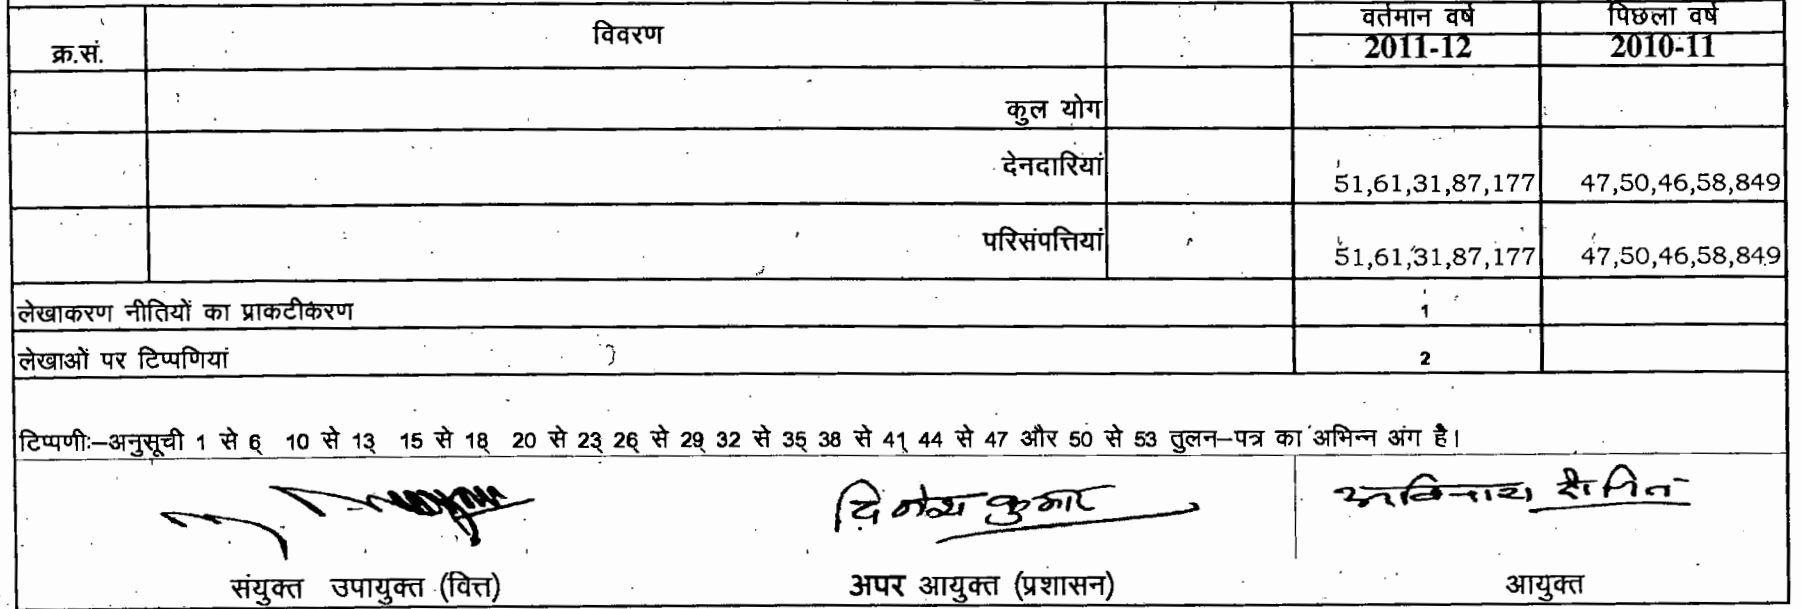 क्र.सं. विवरण वर्तमान वर्ष 2011-12 पिछला वर्ष 2010-11
कुल योग
देनदारियां 51,61,31,87,177 47,50,46,58,849
परिसंपत्तियां 51,61,31,87,177 47,50,46,58,849
लेखाकरण नीतियों का प्राकटीकरण 1
लेखाओं पर टिप्पणियां 2
टिप्पणीः–अनुसूची 1 से 6, 10 से 13, 15 से 18, 20 से 23, 26 से 29, 32 से 35, 38 से 41, 44 से 47 और 50 से 53 तुलन–पत्र का अभिन्न अंग है।
दिनेश कुमार
संयुक्त उपायुक्त (वित्त) अपर आयुक्त (प्रशासन) आयुक्त